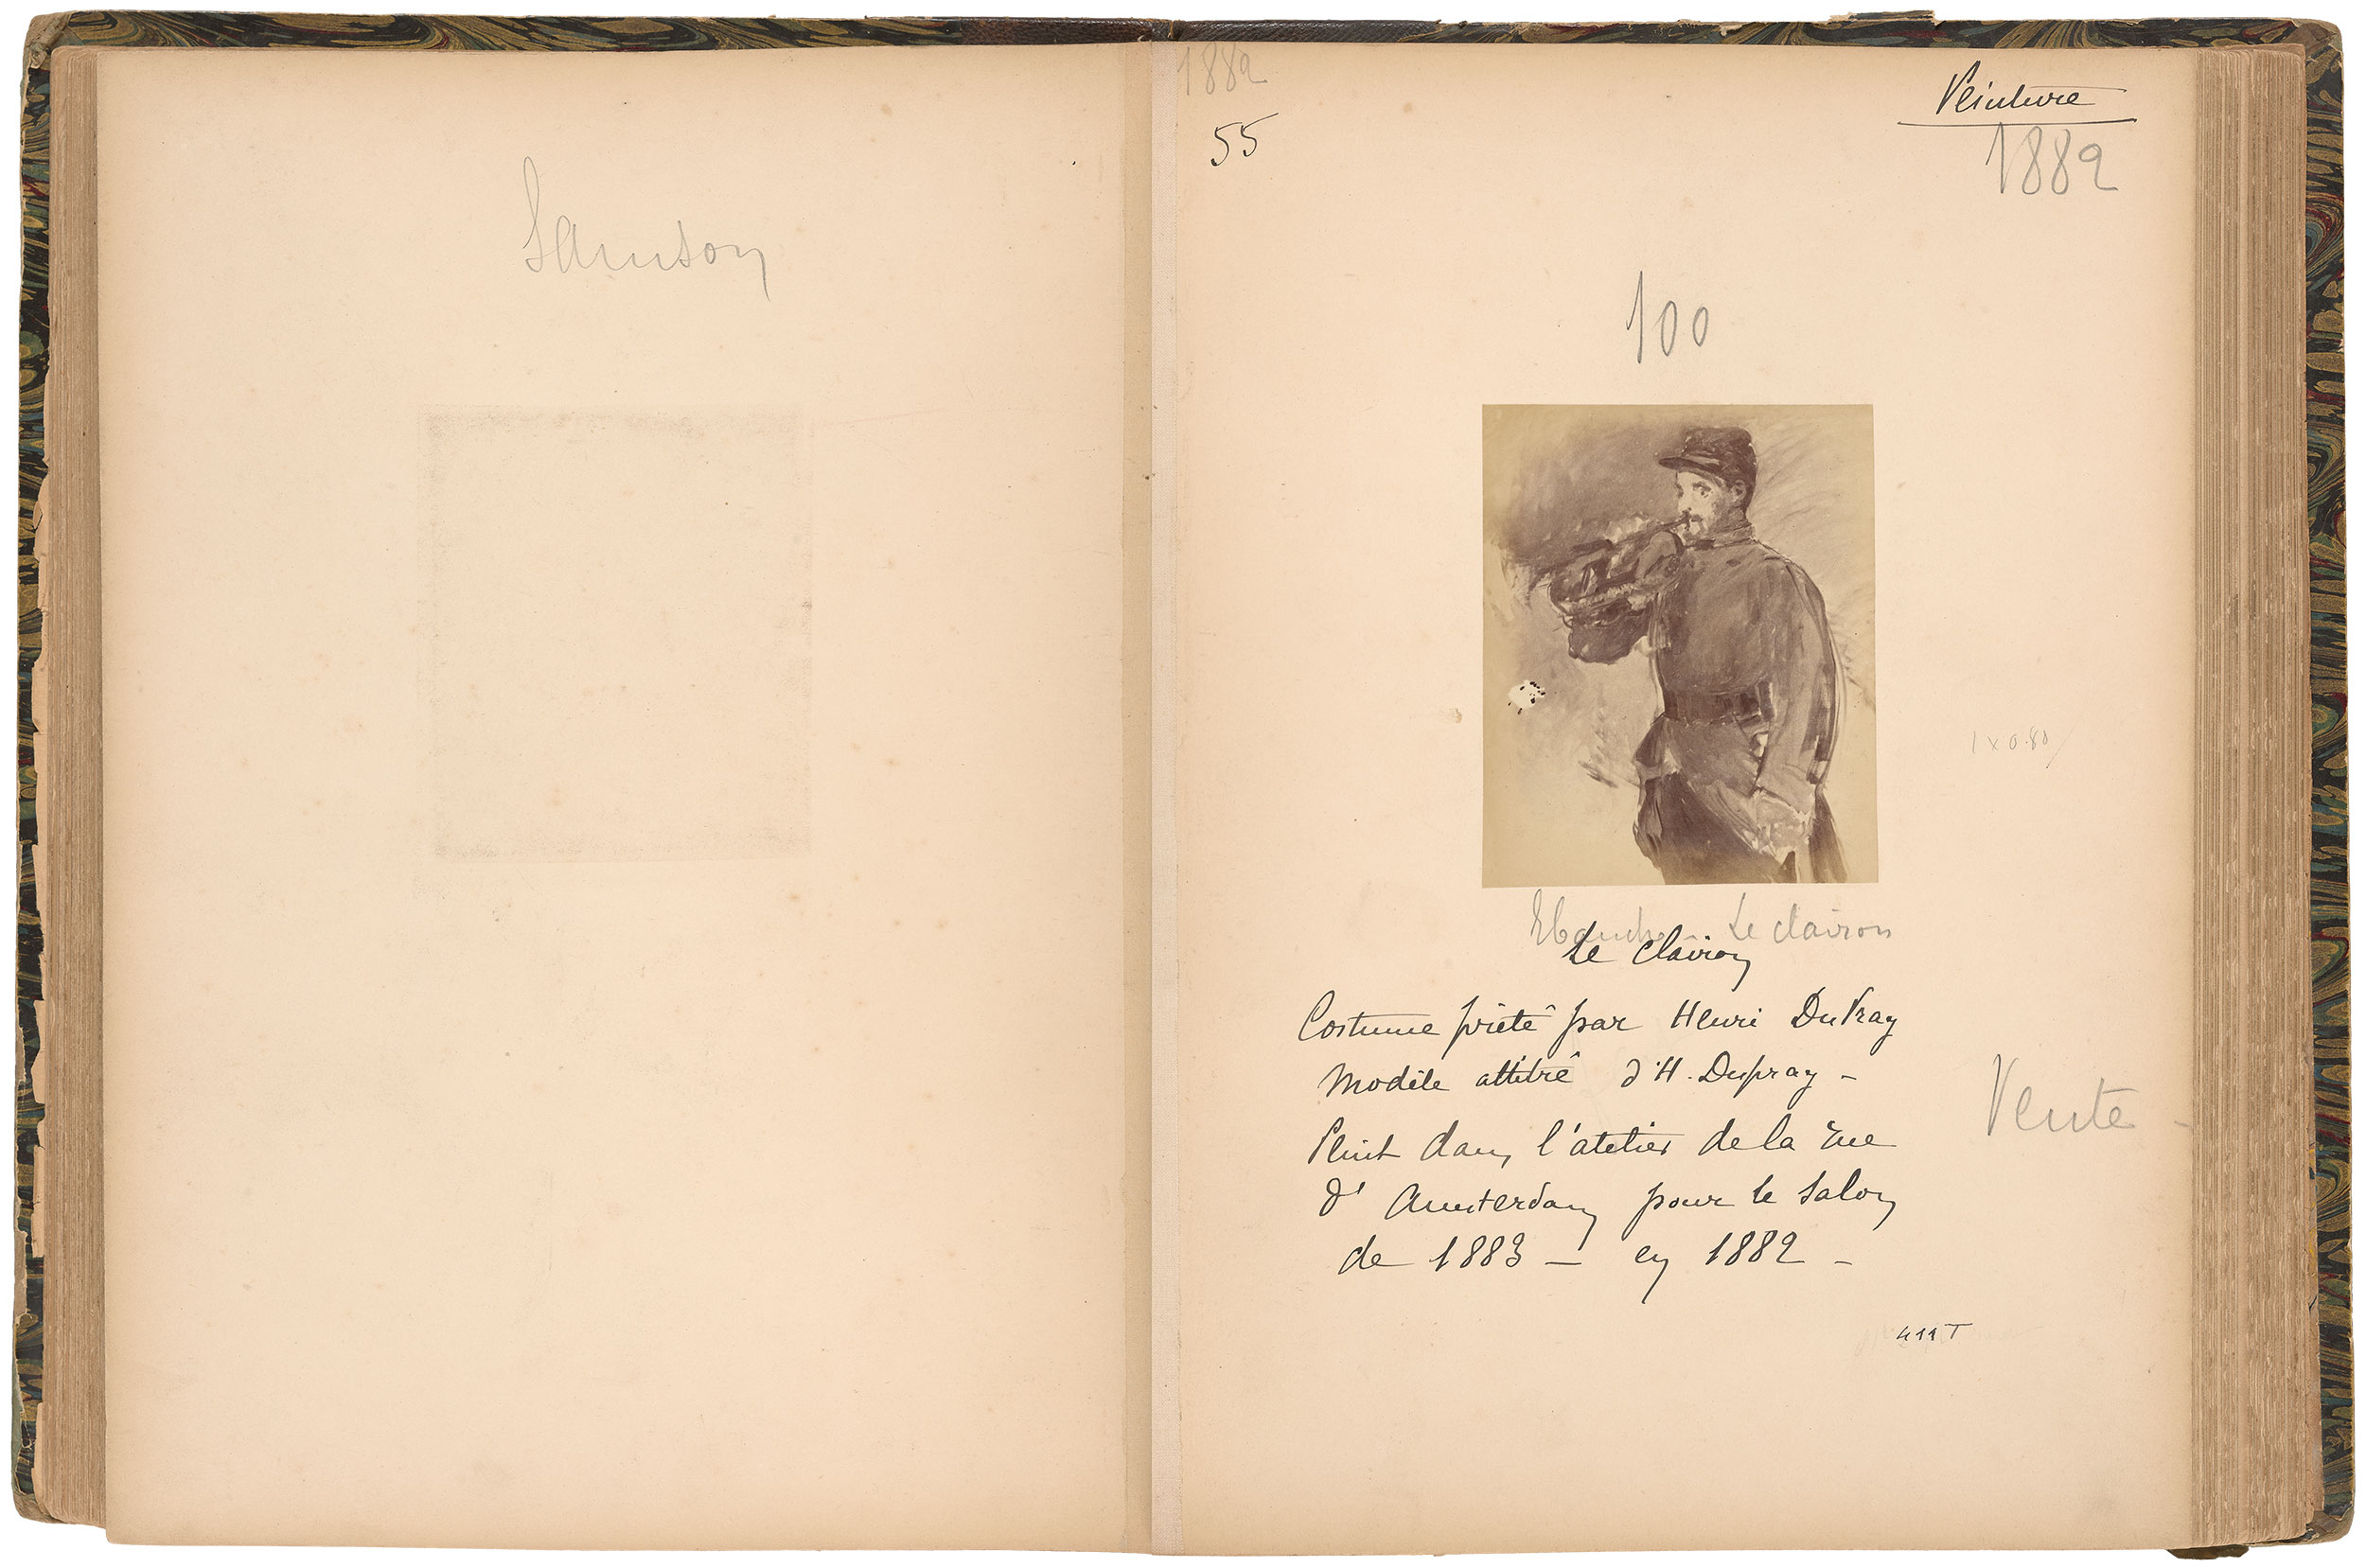 Samson
1882
55
Peinture
1882
100
1 x 0.80
Ebauche Le clairon
Le Clairon
Costume prêté par Henri DuPray
Modèle attitré d'H. Dupray -
Peint dans l'atelier de la rue
d'Amsterdam pour le Salon
de 1883 - en 1882 -
Vente -
411T